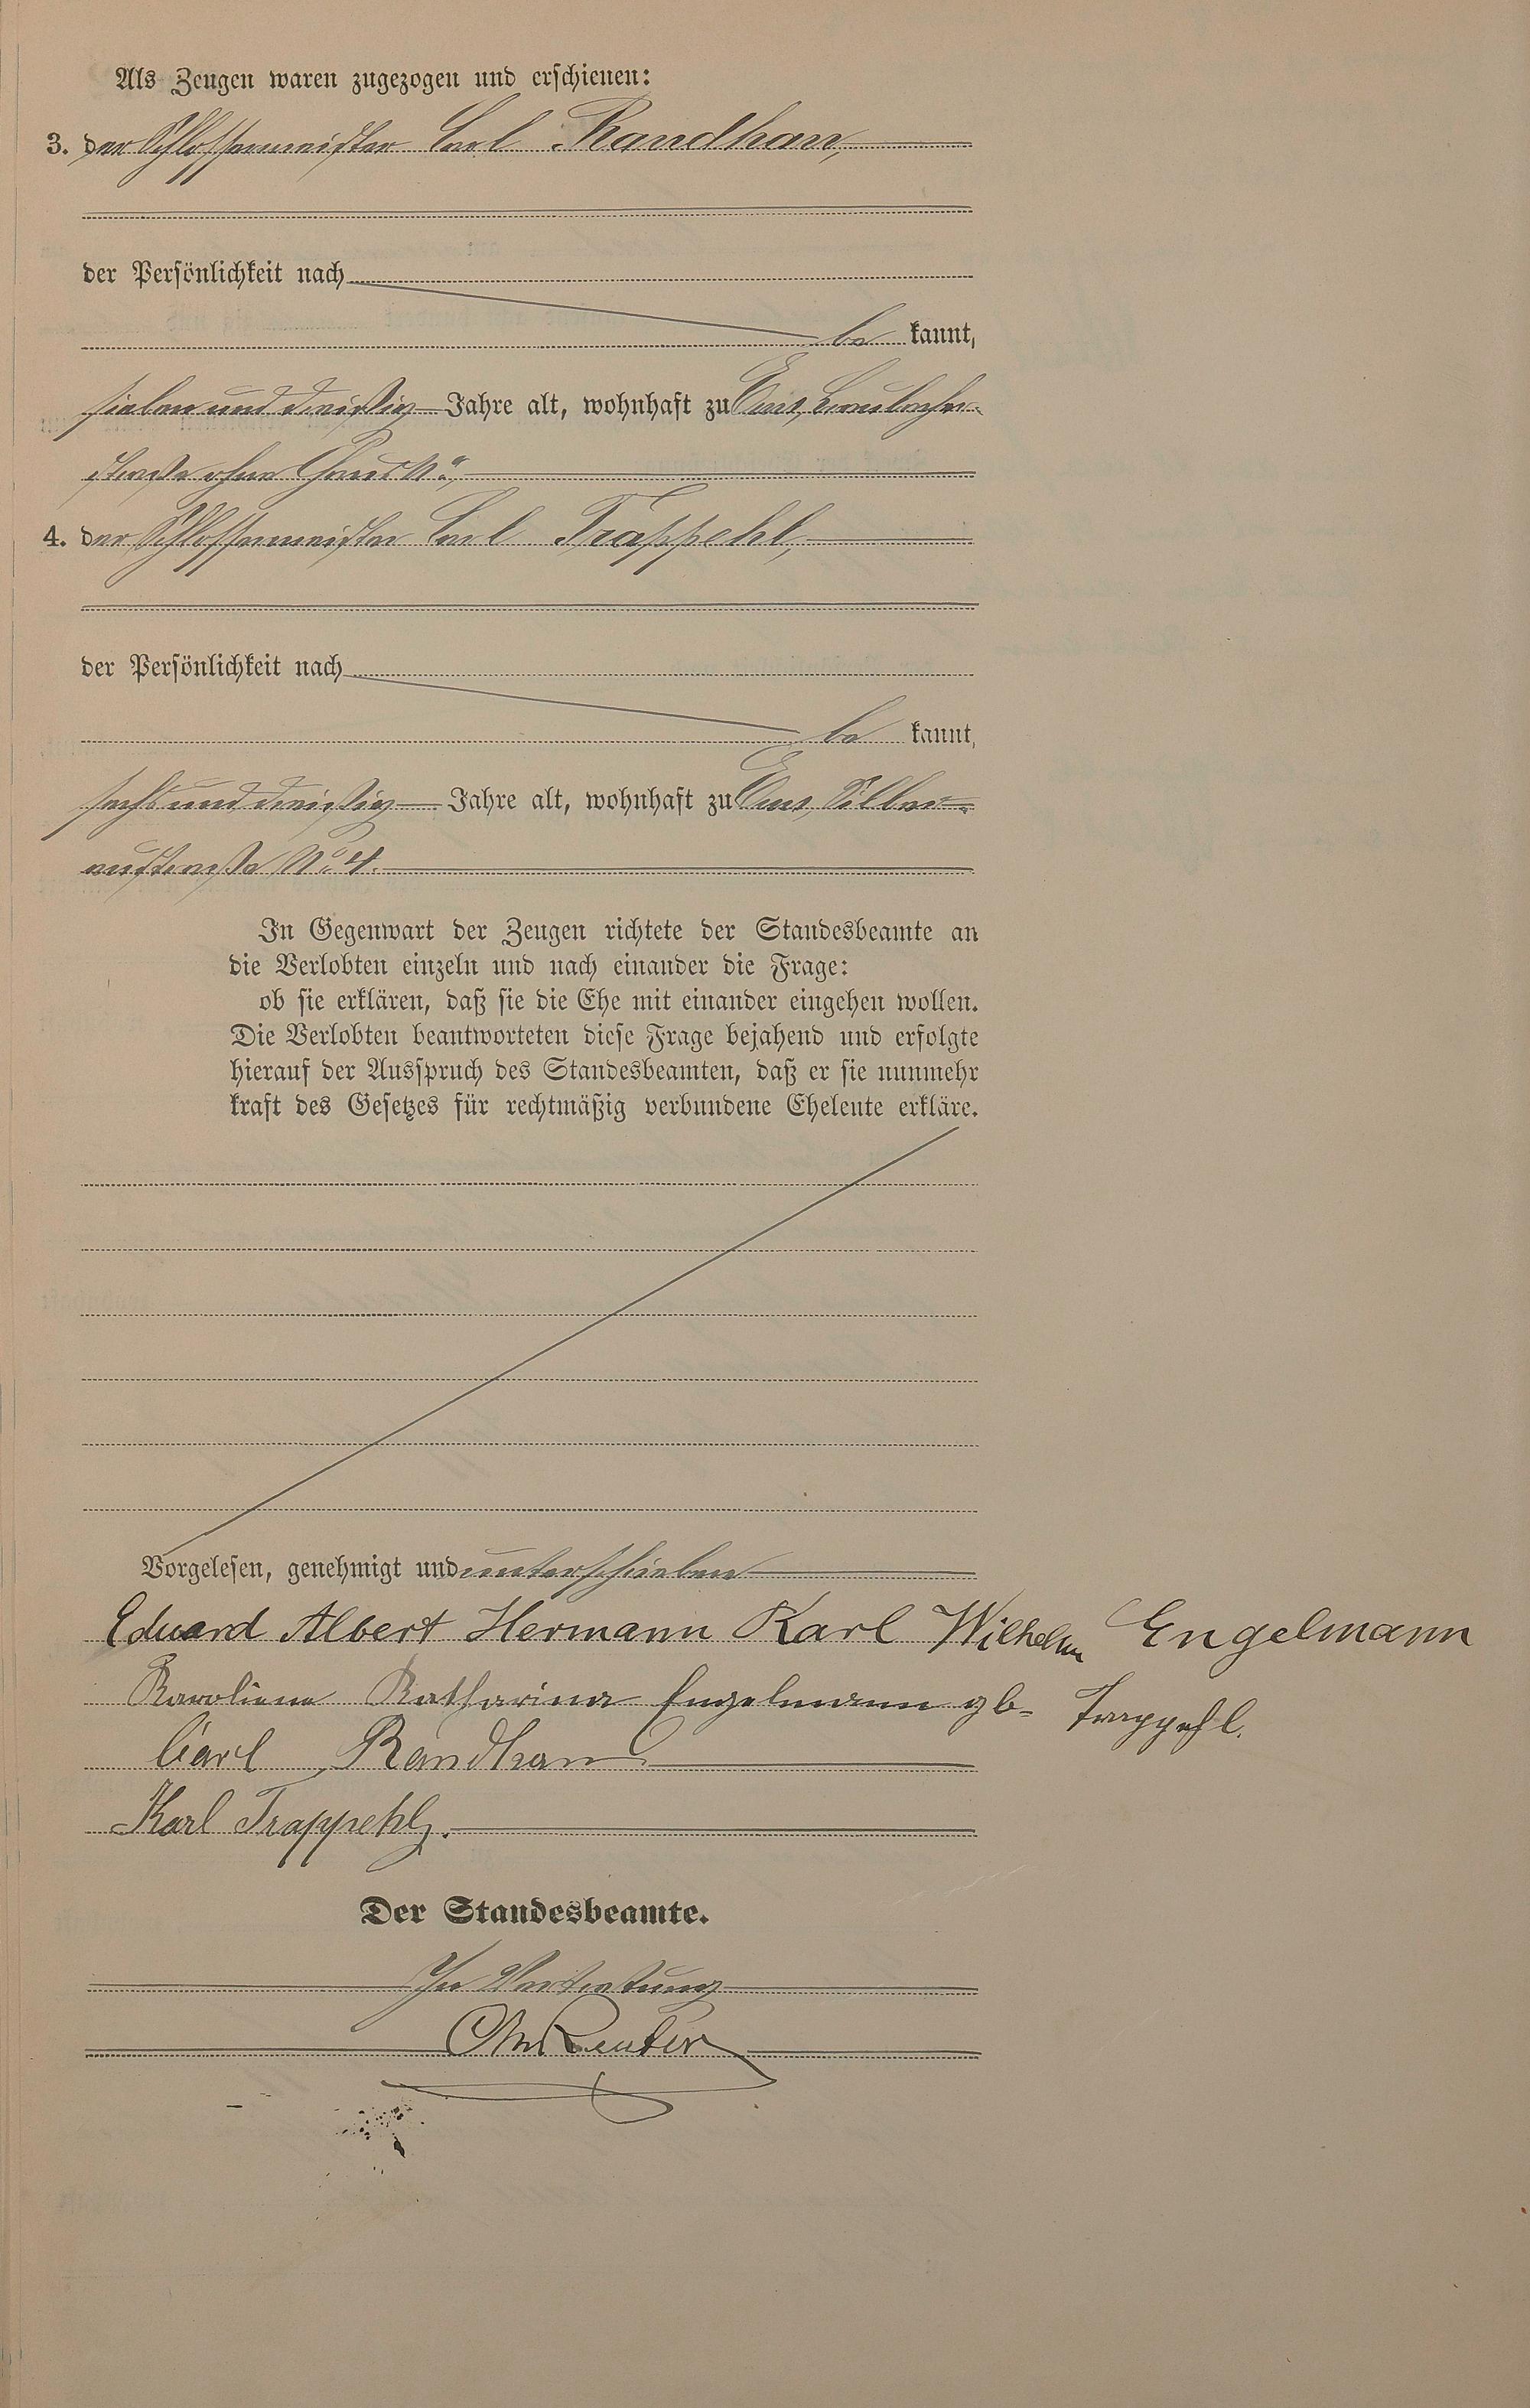 Als Zeugen waren zugezogen und erschienen:
3. der Schlossermeister Carl Randhan,
der Persönlichkeit nach
be kannt,
sieben und dreißig Jahre alt, wohnhaft zu Ems, Braubacher-
straße ohne Haus No,
4. der Schlossermeister Carl Trappehl,
der Persönlichkeit nach
be kannt,
sechs und dreißig Jahre alt, wohnhaft zu Ems, Silber-
austraße No 4.
In Gegenwart der Zeugen richtete der Standesbeamte an
die Verlobten einzeln und nach einander die Frage:
ob sie erklären, daß sie die Ehe mit einander eingehen wollen.
Die Verlobten beantworteten diese Frage bejahend und erfolgte
hierauf der Ausspruch des Standesbeamten, daß er sie nunmehr
kraft des Gesetzes für rechtmäßig verbundene Eheleute erkläre.
Vorgelesen, genehmigt und unterschrieben
Eduard Albert Hermann Karl Wilhelm Engelmann
Karoliena Katharina Engelmann gb- Trappehl.
Carl Randhan
Karl Trappehl.
Der Standesbeamte.
In Vertretung
Reuter